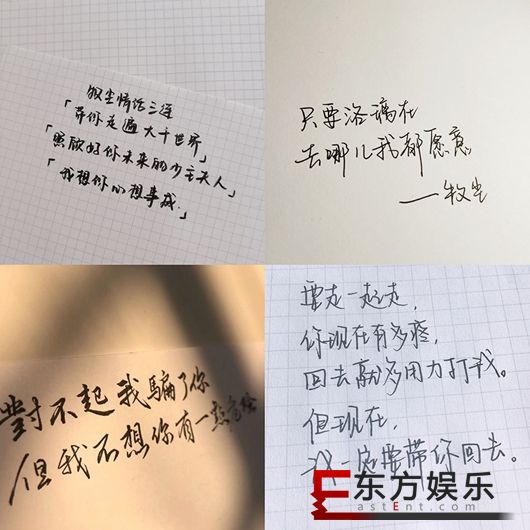 牧尘情话三连
「带你走遍大千世界」
「照顾好你未来的少主夫人」
「我想你心想事成」
只要洛璃在
去哪儿我都愿意
——牧尘
對不起我騙了你
但我不想你有一点危险
要走一起走，
你现在有多疼，
回去就多用力打我。
但现在，
我一定要带你回去。
东方娱乐
EastEnt.com